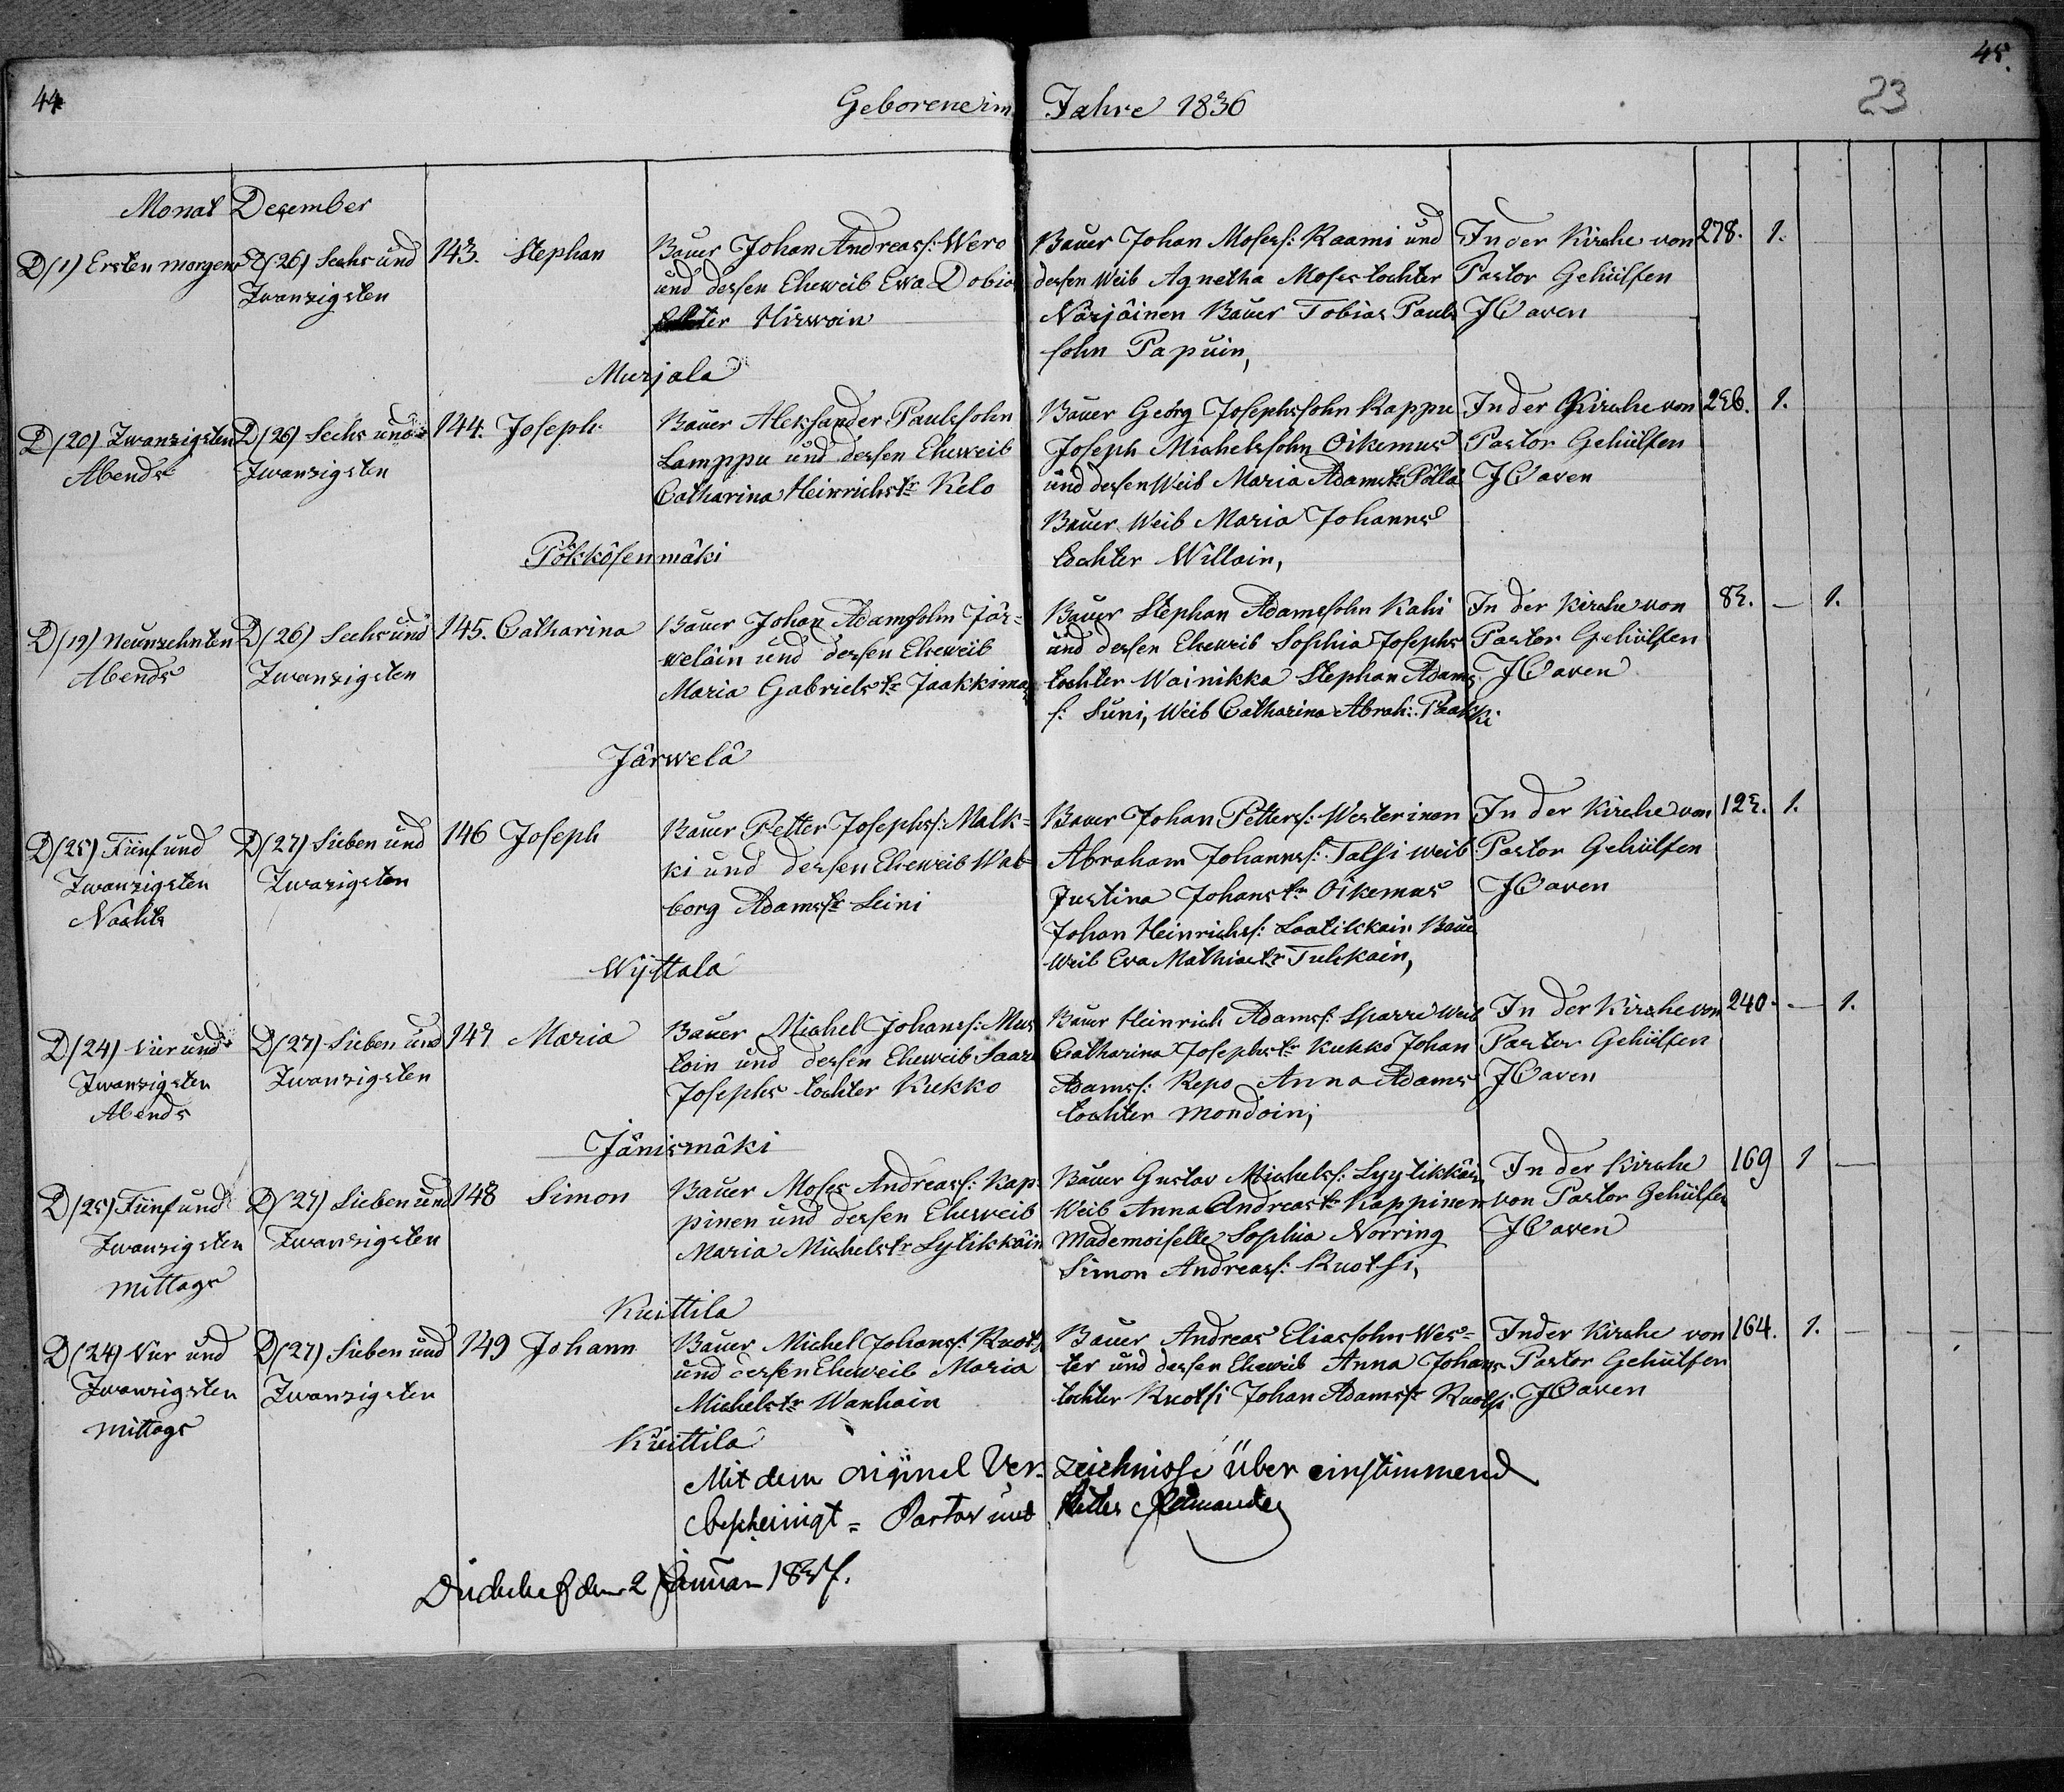 44
45.
23
Geborene im Jahre 1836
Monat December
D(1) Ersten morgens
D(26) Sechs und
Zwanzigsten
143. Stephan
Bauer Johan Andreass: Wero
und dessen Eheweib Ewa Dobias
Hirwoin
Bauer Johan Mosess: Raami und
dessen Weib Agnetha Moses tochter
Närjäinen Bauer Tobias Pauls
sohn Papuin,
In der Kirche von
Pastor Gehülfen
278. 1.
Murjala
D(20) Zwanzigsten
Abends
D(26) Sechs und
Zwanzigsten
144. Joseph
Bauer Aleksander Paulssohn
Lamppu und dessen Eheweib
Catharina Heinrichstr Kelo
Bauer Georg Josephssohn Kappu
Joseph Michelssohn Oikemus
und dessen Weib Maria Adamstr Pöllä
Bauer Weib Maria Johanns
tochter Willain,
In der Kirche von
Pastor Gehülfen
1.
Pökkösenmäki
D(19) Neunzehnten
Abends
D(26) Sechs und
Zwanzigsten
145. Catharina
Bauer Johan Adamsohn Jär=
weläin und dessen Eheweib
Maria Gabrielstr Jaakkimas
Bauer Stephan Adamssohn Kahi
und dessen Eheweib Sophia Josephs
tochter Wainikka Stephan Adams
s: Suni, Weib Catharina Abrah: Paakki
In der Kirche von
Pastor Gehülfen
— 1.
Järwelä
D(25) Fünf und
Zwanzigsten
Nachts
D(27) Sieben und
Zwazigsten
146 Joseph
Bauer Petter Josephss: Malk=
ki und dessen Eheweib Wal
borg Adamstr Leini
Bauer Johan Petterss: Westerinen
Abraham Johannss: Talsi weib
Justina Johanstr Oikemus
Johan Heinrichss: Laatikkain Baue
Weib Eva Mathiastr Tulkain,
In der Kirche von
Pastor Gehülfen
1.
Wÿttala
D(24) Vier und
Zwanzigsten
Abends
D(27) Sieben und
Zwanzigsten
147 Maria
Bauer Michel Johanss: Mus
toin und dessen Eheweib Saara
Josephs tochter Kukko
Bauer Heinrich Adamss: Sparre Weib
Catharina Josephstr Kukko Johan
Adamss: Repo Anna Adams
tochter Mondoin;
In der Kirche von
Pastor Gehülfen
240. — 1.
Jänismäki
D(25) Fünf und
Zwanzigsten
mittags
D(27) Sieben und
Zwanzigsten
148 Simon
Bauer Moses Andreass: Kap=
pinen und dessen Eheweib
Maria Michelstr Lytikkäin
Bauer Gustav Michelss: Lyytikkäin
Weib Anna Andreastr Kappinen
Mademoiselle Sophia Norring
Simon Andreass: Ruotsi,
In der Kirche
von Pastor Gehülfen
169 1 —
Kuittila
D(24) Vier und
Zwanzigsten
mittags
D(27) Sieben und
Zwanzigsten
149 Johann
Bauer Michel Johanss: Ruots
und dessen Eheweib Maria
Michelstr Wanhain
Bauer Andreas Eliassohn Wes=
ter und dessen Eheweib Anna Johans
tochter Ruotsi Johan Adamstr Ruotsi
In der Kirche von
Pastor Gehülfen
164. 1. —
Kuittila
Mit dem original Ver=zeichnisse über einstimmend
bescheinigt = Pastor und
den 2 Januar 1837.